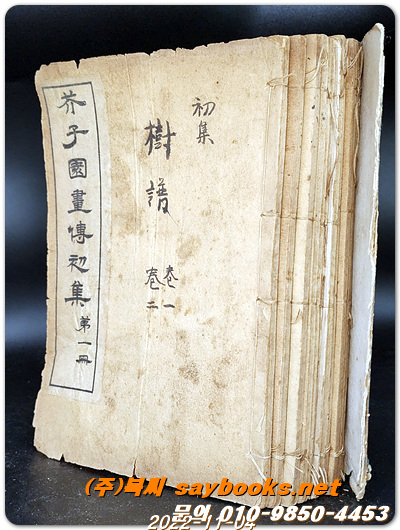 芥子園畫傳初集 第一冊
初集
樹譜
卷一
卷二
(주)북써 saybooks.net
문의 010-9850-4453
2022-11-04